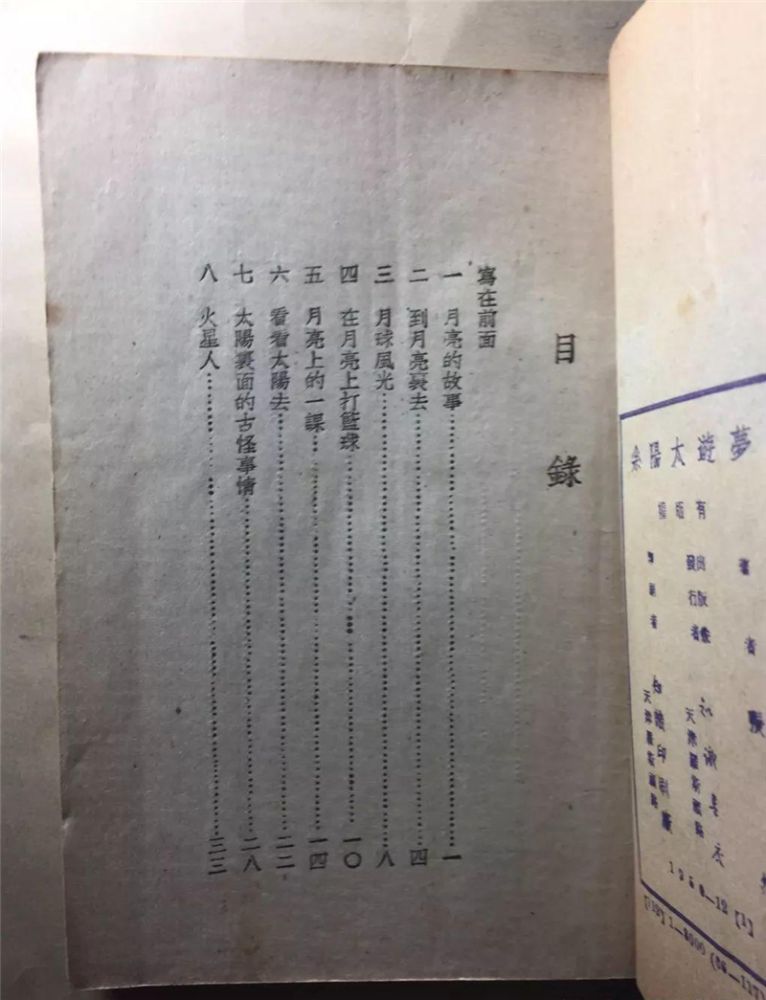 目 錄
寫在前面
一 月亮的故事……一
二 到月亮裏去……四
三 月球風光……八
四 在月亮上打籃球……一〇
五 月亮上的一課……一四
六 看看太陽去……二二
七 太陽裏面的古怪事情……二八
八 火星人……三三
夢遊太陽系
著者 張
有 版 權
出版兼
發行者
印刷者